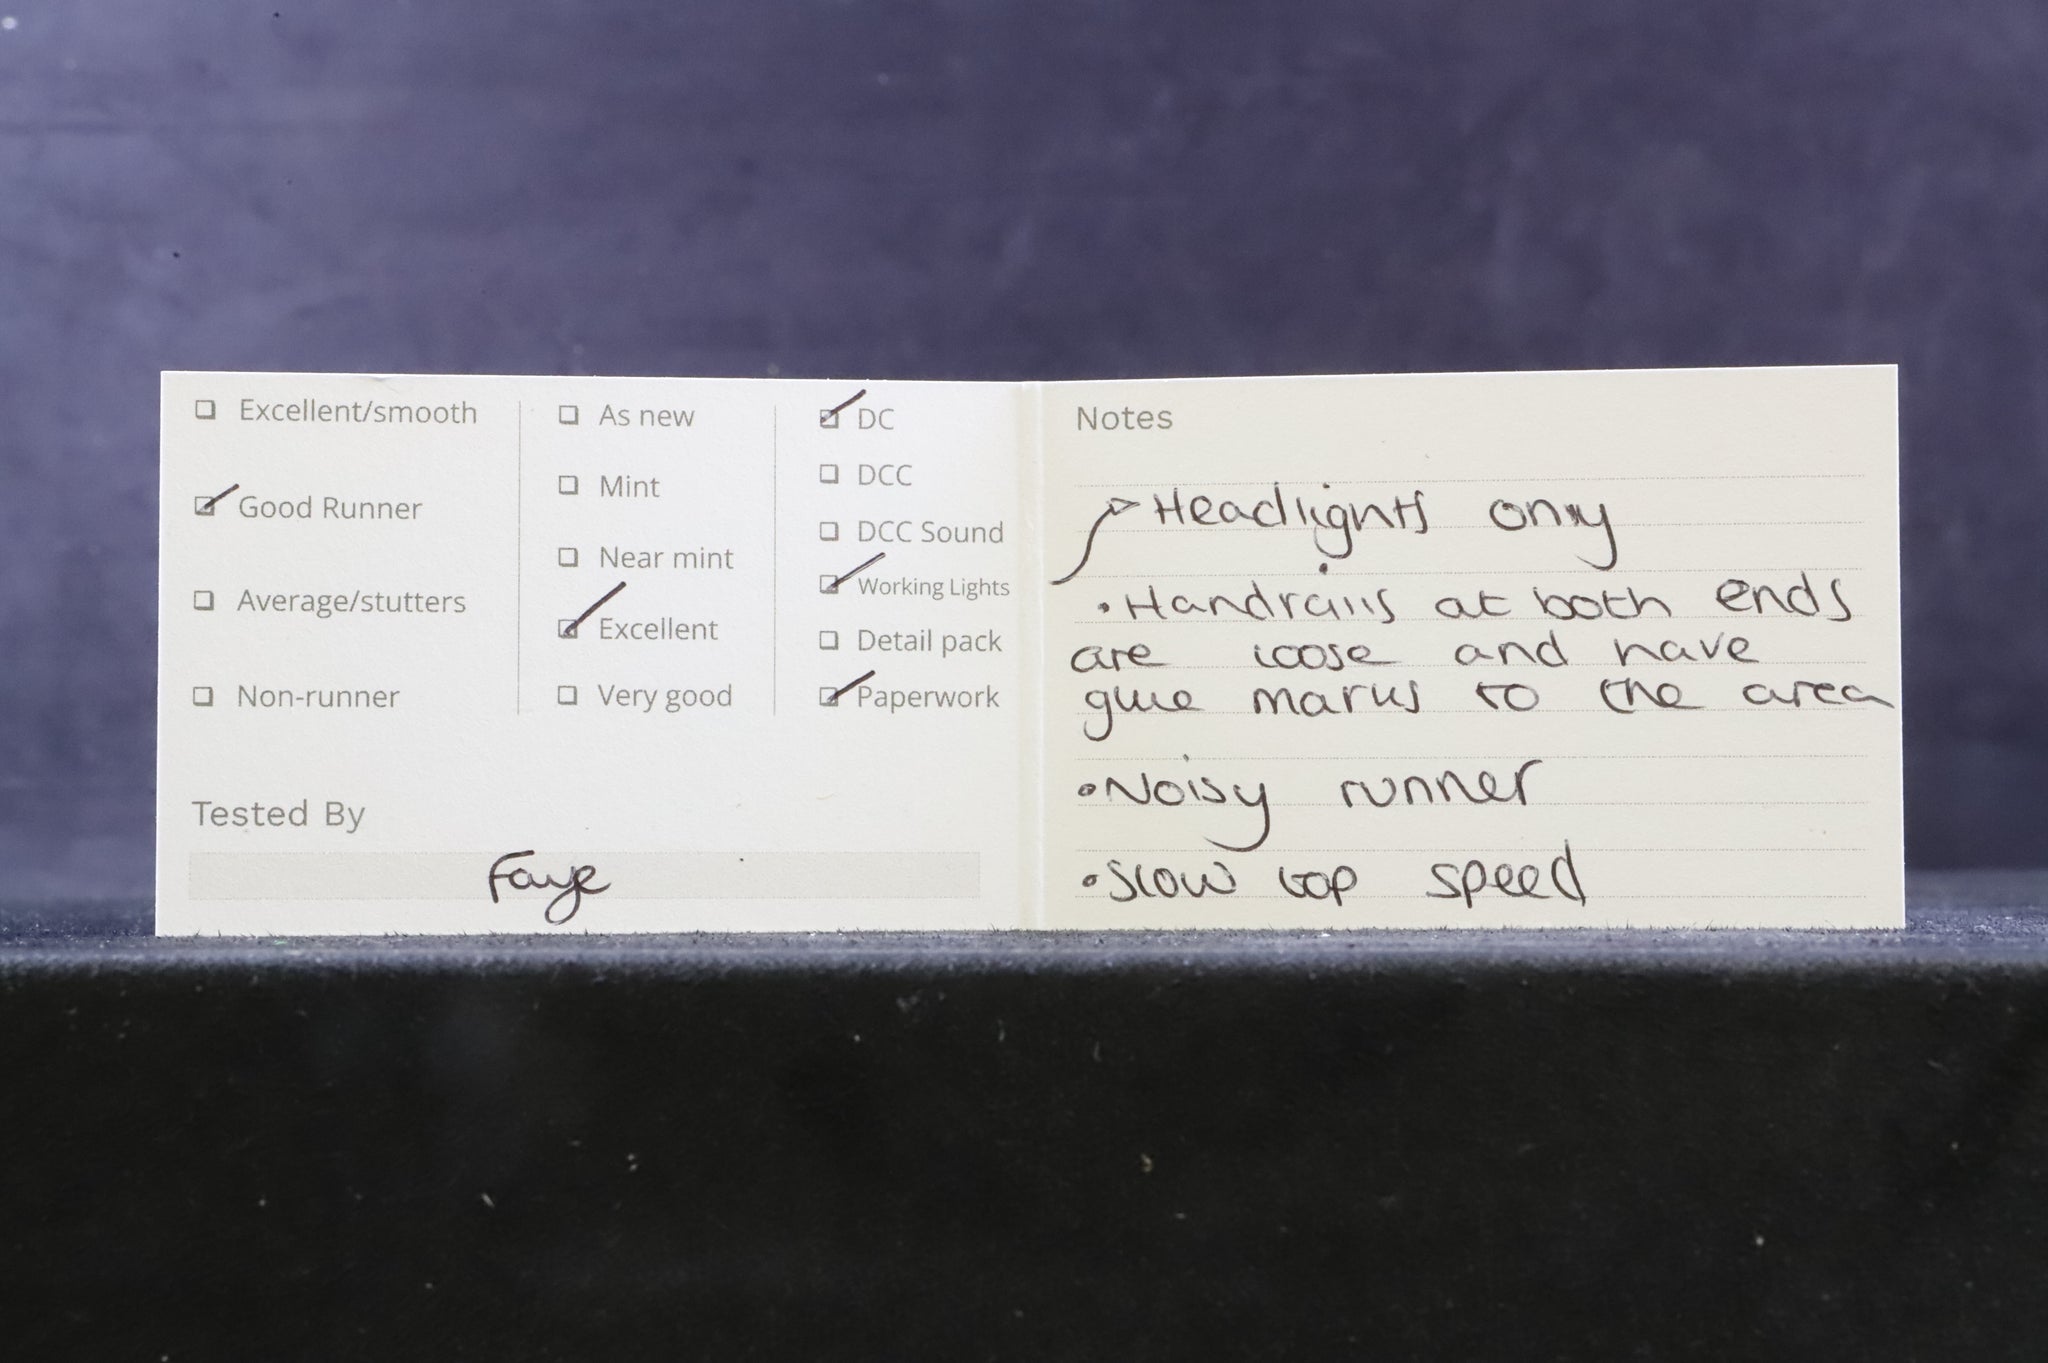 Excellent/smooth
Good Runner
Average/stutters
Non-runner
As new
Mint
Near mint
Excellent
Very good
DC
DCC
DCC Sound
Working Lights
Detail pack
Paperwork
Tested By
Faye
Notes
Headlights only
• Handrails at both ends
are loose and have
glue marks to the area
• Noisy runner
• Slow top speed